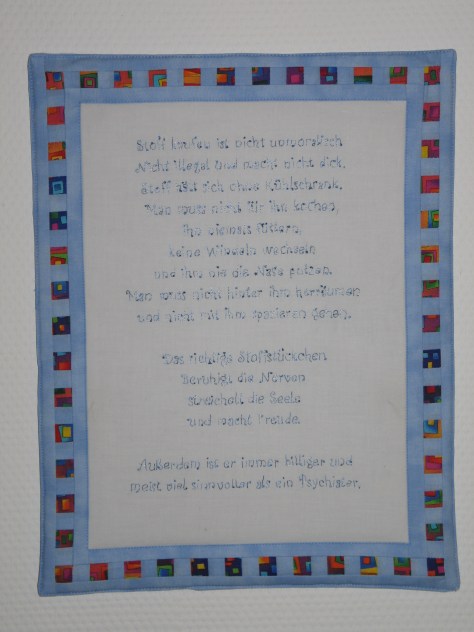 Stoff kaufen ist nicht unmoralisch
Nicht illegal und macht nicht dick.
Stoff hält sich ohne Kühlschrank.
Man muss nicht für ihn kochen,
ihn niemals füttern,
keine Windeln wechseln
und ihm nie die Nase putzen.
Man muss nicht hinter ihm herräumen
und nicht mit ihm spazieren gehen.
Das richtige Stoffstückchen
Beruhigt die Nerven
streichelt die Seele
und macht Freude.
Außerdem ist er immer billiger und
meist viel sinnvoller als ein Psychiater.